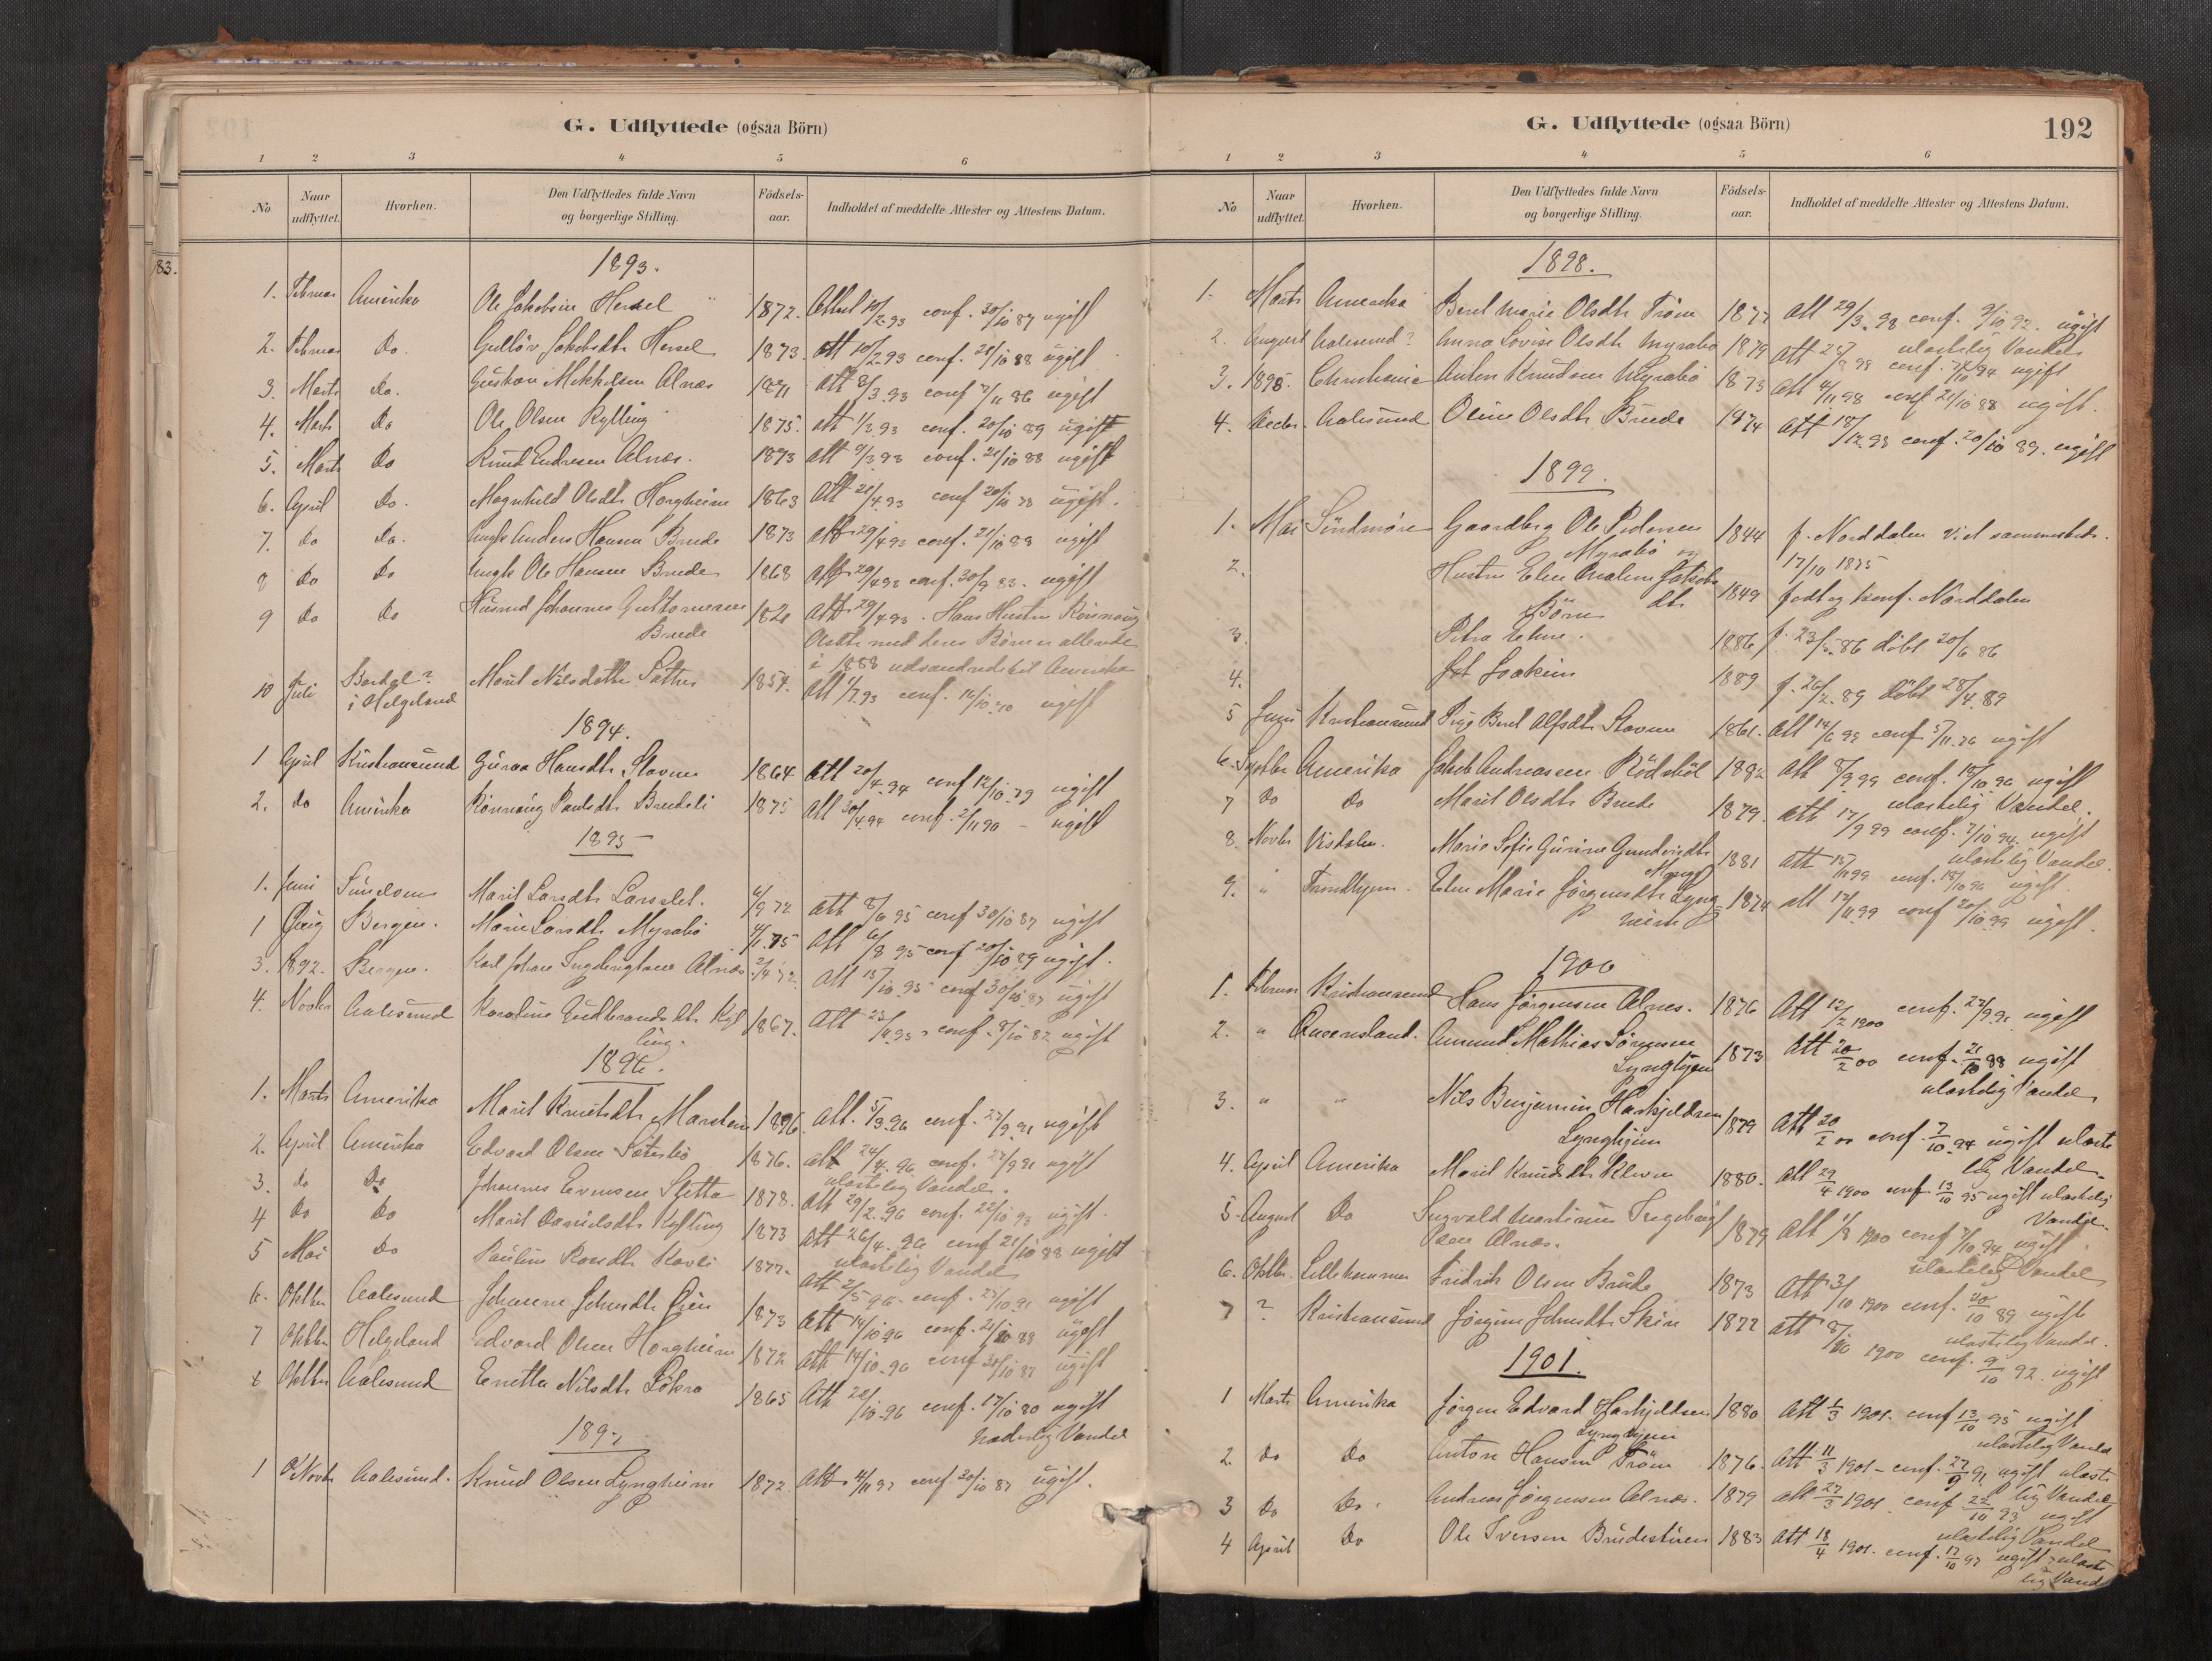 G. Udflyttede (ogsaa Börn)
1 2 3 4 5 6
No Naar udflyttet. Hvorhen. Den Udflyttedes fulde Navn og borgerlige Stilling. Födsels-aar. Indholdet af meddelte Attester og Attestens Datum.
83.
1893.
1. Februar Amerika Ole Jakobsen Hersel 1872. Attest 10/2 93 conf. 30/10 87 ugift
2. Februar Do. Gulløv Jakobsdtr Hersel 1873. Att 10/2 93 conf. 21/10 88 ugift
3. Marts Do. Gustav Mikkelsen Alnæs 1871 Att 8/3 93 conf 7/11 86 ugift
4. Marts Do Ole Olsen Kylling 1875. Att 1/3 93 conf. 20/10 89 ugift
5. Marts Do Knud Endresen Alnæs. 1873 Att 9/3 93 conf. 21/10 88 ugift
6. April Do. Magnhild Olsdtr Horgheim 1863 Att 21/4 93 conf 20/10 78 ugift.
7. Do Do. Ungk Anders Hansen Brude 1873 Att 29/4 93 conf. 21/10 88 ugift
8 Do Do Ungk Ole Hansen Brude 1868 Att 29/4 93 conf. 30/9 83. ugift
9 Do Do Husmd Johannes Guttormsen 1828 Att 29/4 93. Hans Hustru Rönnaug
Brude Olsdtr med deres Børn er allerede
i 1888 udvandrede til Amerika
10 Juli Bardal? Marit Nilsdatter Sæther 1854. Att 1/7 93 conf. 16/10 70 ugift
i Helgeland
1894.
1 April Kristiansund Guraa Hansdtr Stavnes 1864 Att 20/4 94 conf 12/10 79 ugift
2. do Amerika Rönnaug Paulsdtr Brudeli 1875 Att 30/4 94 conf. 2/11 90 - ugift
1895
1. Juni Sundalen Marit Larsdtr Larsslet. 4/9 72 Att 8/6 95 conf 30/10 87 ugift
1 Aug Bergen. Marie Larsdtr Myrabö 4/1 75 Att 6/8 95 conf 20/10 89 ugift.
3. 1892. Bergen. Karl Johan Ingebrigtsen Alnæs 2/4 72. Att 15/10 95 conf 30/10 87 ugift
4. Novbr Aalesund Karoline Gudbrandsdtr Kyl 1867. Att 23/11 95 conf. 8/10 82 ugift
ling.
1896.
1. Marts Amerika Marit Knutsdtr Marstein 1876 Att. 5/3 96 conf. 27/9 91 ugift
2. April Amerika Edvard Olsen Sætersbö 1876. Att 24/4 96 conf. 27/9 91 ugift
ulastelig Vandel.
3. do Do Johannes Evensen Sletta 1878. Att 29/2 96 conf. 22/10 93 ugift.
4 Do Do Marit Danielsdtr Kylling 1873 Att 26/4 96 conf 21/10 88 ugift
ulastelig Vandel
5 Mai Do Pauline Larsdtr Kavli 1877. Att 2/5 96 conf. 27/10 91 ugift
6. Oktbr Aalesund Johanne Johnsdtr Öien 1873 Att 14/10 96 conf. 21/10 88 ugift
7 Oktbr Helgeland Edvard Olsen Horgheim 1872 Att 14/10 96 conf 30/10 87 ugift
8 Oktbr Aalesund Eretta Nilsdtr Lökra 1865 Att 22/10 96 conf. 17/10 80 ugift
hæderlig Vandel
1897
1 Novbr Aalesund. Knud Olsen Lyngheim 1872. Att 4/11 97 conf 30/10 87 ugift.
G. Udflyttede (ogsaa Börn) 192
1 2 3 4 5 6
No Naar udflyttet. Hvorhen. Den Udflyttedes fulde Navn og borgerlige Stilling. Födsels-aar. Indholdet af meddelte Attester og Attestens Datum.
1898.
1. Marts Amerika Beret Marie Olsdtr Tröen 1877 Att 29/3 98 conf. 9/10 92. ugift
ulastelig Vandel
2. August Aalesund? Anna Lovise Olsdtr Myrabö 1879 Att 27/8 98 conf. 7/10 94 ugift
3. 1898. Christiania Anton Knudsen Myrabö 1873 Att 4/11 98 conf 21/10 88 ugift.
4. Decbr. Aalesund Oline Olsdtr Brude 1874 Att 18/12 98 conf. 20/10 89. ugift
1899.
1. Mai Söndmöre Gaardbrg Ole Pedersen 1844 f. Norddalen V. d sammesteds.
Myrabö og 17/10 1875
2. Hustru Elen Malene Jakobs
dtr 1849 født og konf. Norddalen
Börn
3. Petra Eline. 1886 f. 23/5 86 döbt 20/6 86
4. Joakim 1889 f. 26/2 89 döbt 28/4 89
5 Juni Kristiansund Pige Beret Alfsdtr Stavnes 1861. Att 14/6 99 conf 5/11 76 ugift
6. Septbr Amerika Jakob Andreassen Rödstöl 1882 Att 8/9 99 conf. 18/10 96 ugift
ulastelig Vandel.
7 Do Do Marit Olsdtr Brude 1879. Att 17/9 99 conf. 7/10 94. ugift
ulastelig Vandel.
8. Novbr Visdalen. Marie Sofie Gurine Gundersdtr 1881 Att 15/11 99 conf. 18/10 96 ugift.
9. " Trondhjem. Elen Marie Jörgensdtr Lyng 1874 Att 17/11 99 conf 20/10 99 ugift.
heim
1900
1. Februar Kristiansund Hans Jörgensen Alnes. 1876 Att 12/2 1900 conf. 27/9 91 ugift
2. " Queensland. Amund Mathias Jörgensen 1873 Att 20/2 00 conf. 21/10 88 ugift
Lyngheim ulastelig Vandel
3. " " Nils Benjamin Harkjeldsen 1879 Att 20/2 00 conf. 7/10 94 ugift ulaste
Lyngheim lig Vandel.
4. April Amerika Marit Knudsdtr Kleiva 1880. Att 29/4 1900 conf 13/10 95 ugift ulastelig
Vandel.
5. August Do Ingvald Martinus Ingebrigt 1879 Att 1/8 1900 conf 7/10 94 ugift.
sen Alnæs. ulastelig Vandel
6. Oktbr. Lillehammer Fredrik Olsen Brude 1873 Att 3/10 1900 conf. 20/10 89 ugift
ulastelig Vandel.
7 ? Kristiansund Jörgine Johnsdtr Skiri 1877 Att 8/10 1900 conf. 9/10 92. ugift
1901.
1 Marts Amerika Jörgen Edvard Harkjeldsen 1880 Att 1/3 1901. conf 13/10 95 ugift
Lyngheim ulastelig Vandel
2. Do Do Anton Hansen Tröen 1876. Att 11/3 1901 - conf. 27/9 91 ugift ulaste
lig Vandel
3 Do Do. Andreas Jörgensen Alnæs. 1879 Att 27/3 1901. conf 22/10 93 ugift
ulastelig Vandel
4 April Do Ole Iversen Brudestuen 1883 Att 18/4 1901. conf. 17/10 97 ugift, ulaste
lig Vand